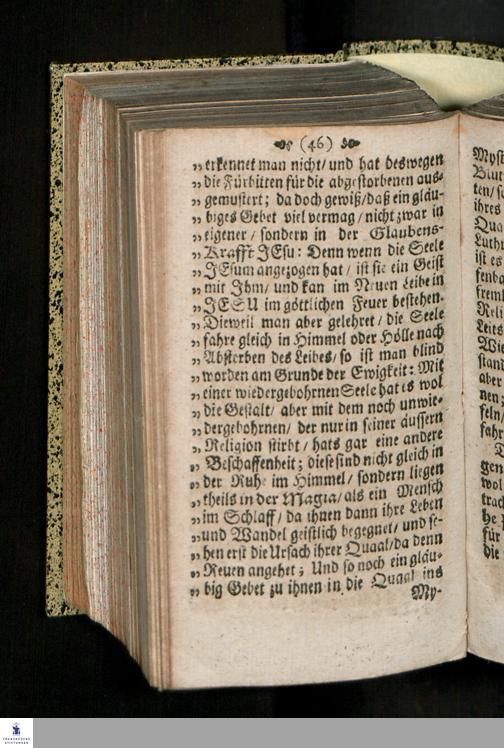 (46)
„ erkennet man nicht / und hat deswegen
„ die Fürbitten für die abgestorbenen aus-
„ gemustert; da doch gewiß / daß ein gläu-
„ biges Gebet viel vermag / nicht zwar in
„ eigener / sondern in der Glaubens-
„ Krafft JEsu: Denn wenn die Seele
„ JEsum angezogen hat / ist sie ein Geist
„ mit Ihm / und kan im Neuen Leibe in
„ JESU im göttlichen Feuer bestehen.
„ Dieweil man aber gelehret / die Seele
„ fahre gleich in Himmel oder Hölle nach
„ Absterben des Leibes / so ist man blind
„ worden am Grunde der Ewigkeit: Mit
„ einer wiedergebohrnen Seele hat es wol
„ die Gestalt / aber mit dem noch unwie-
„ dergebohrnen / der nur in seiner äussern
„ Religion stirbt / hats gar eine andere
„ Beschaffenheit; diese sind nicht gleich in
„ der Ruhe im Himmel / sondern liegen
„ theils in der Magia / als ein Mensch
„ im Schlaff / da ihnen dann ihre Leben
„ und Wandel geistlich begegnet / und se-
„ hen erst die Ursach ihrer Quaal / da denn
„ Reuen angehet; Und so noch ein gläu-
„ big Gebet zu ihnen in die Quaal ins
My-